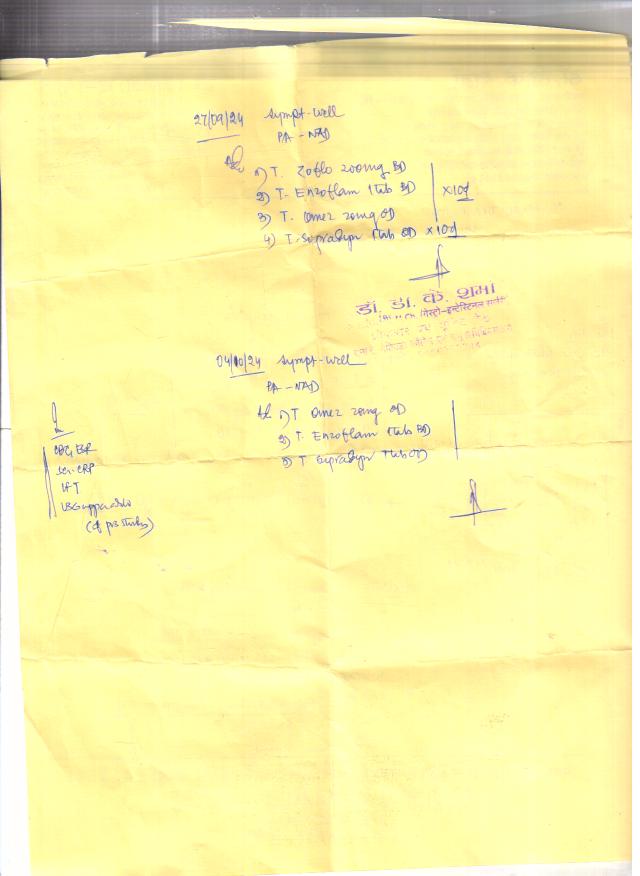 27/09/24 Sympt-Well
PA - NAD
Adv 1) T. Zoflo 200mg BD
2) T- Enzoflam 1tab BD
3) T. Omez 20mg OD
x10d
4) T-Supradyn 1tab OD x10d
डॉ. डी. के. शर्मा
गैस्ट्रो-इन्टेस्टिनल सर्जरी
04/10/24 Sympt-Well
PA - NAD
Ad. 1) T Omez 20mg OD
2) T- Enzoflam 1tab BD
3) T Supradyn 1tab OD
CBC, ESR
Ser. CRP
LFT
USG upper abdo